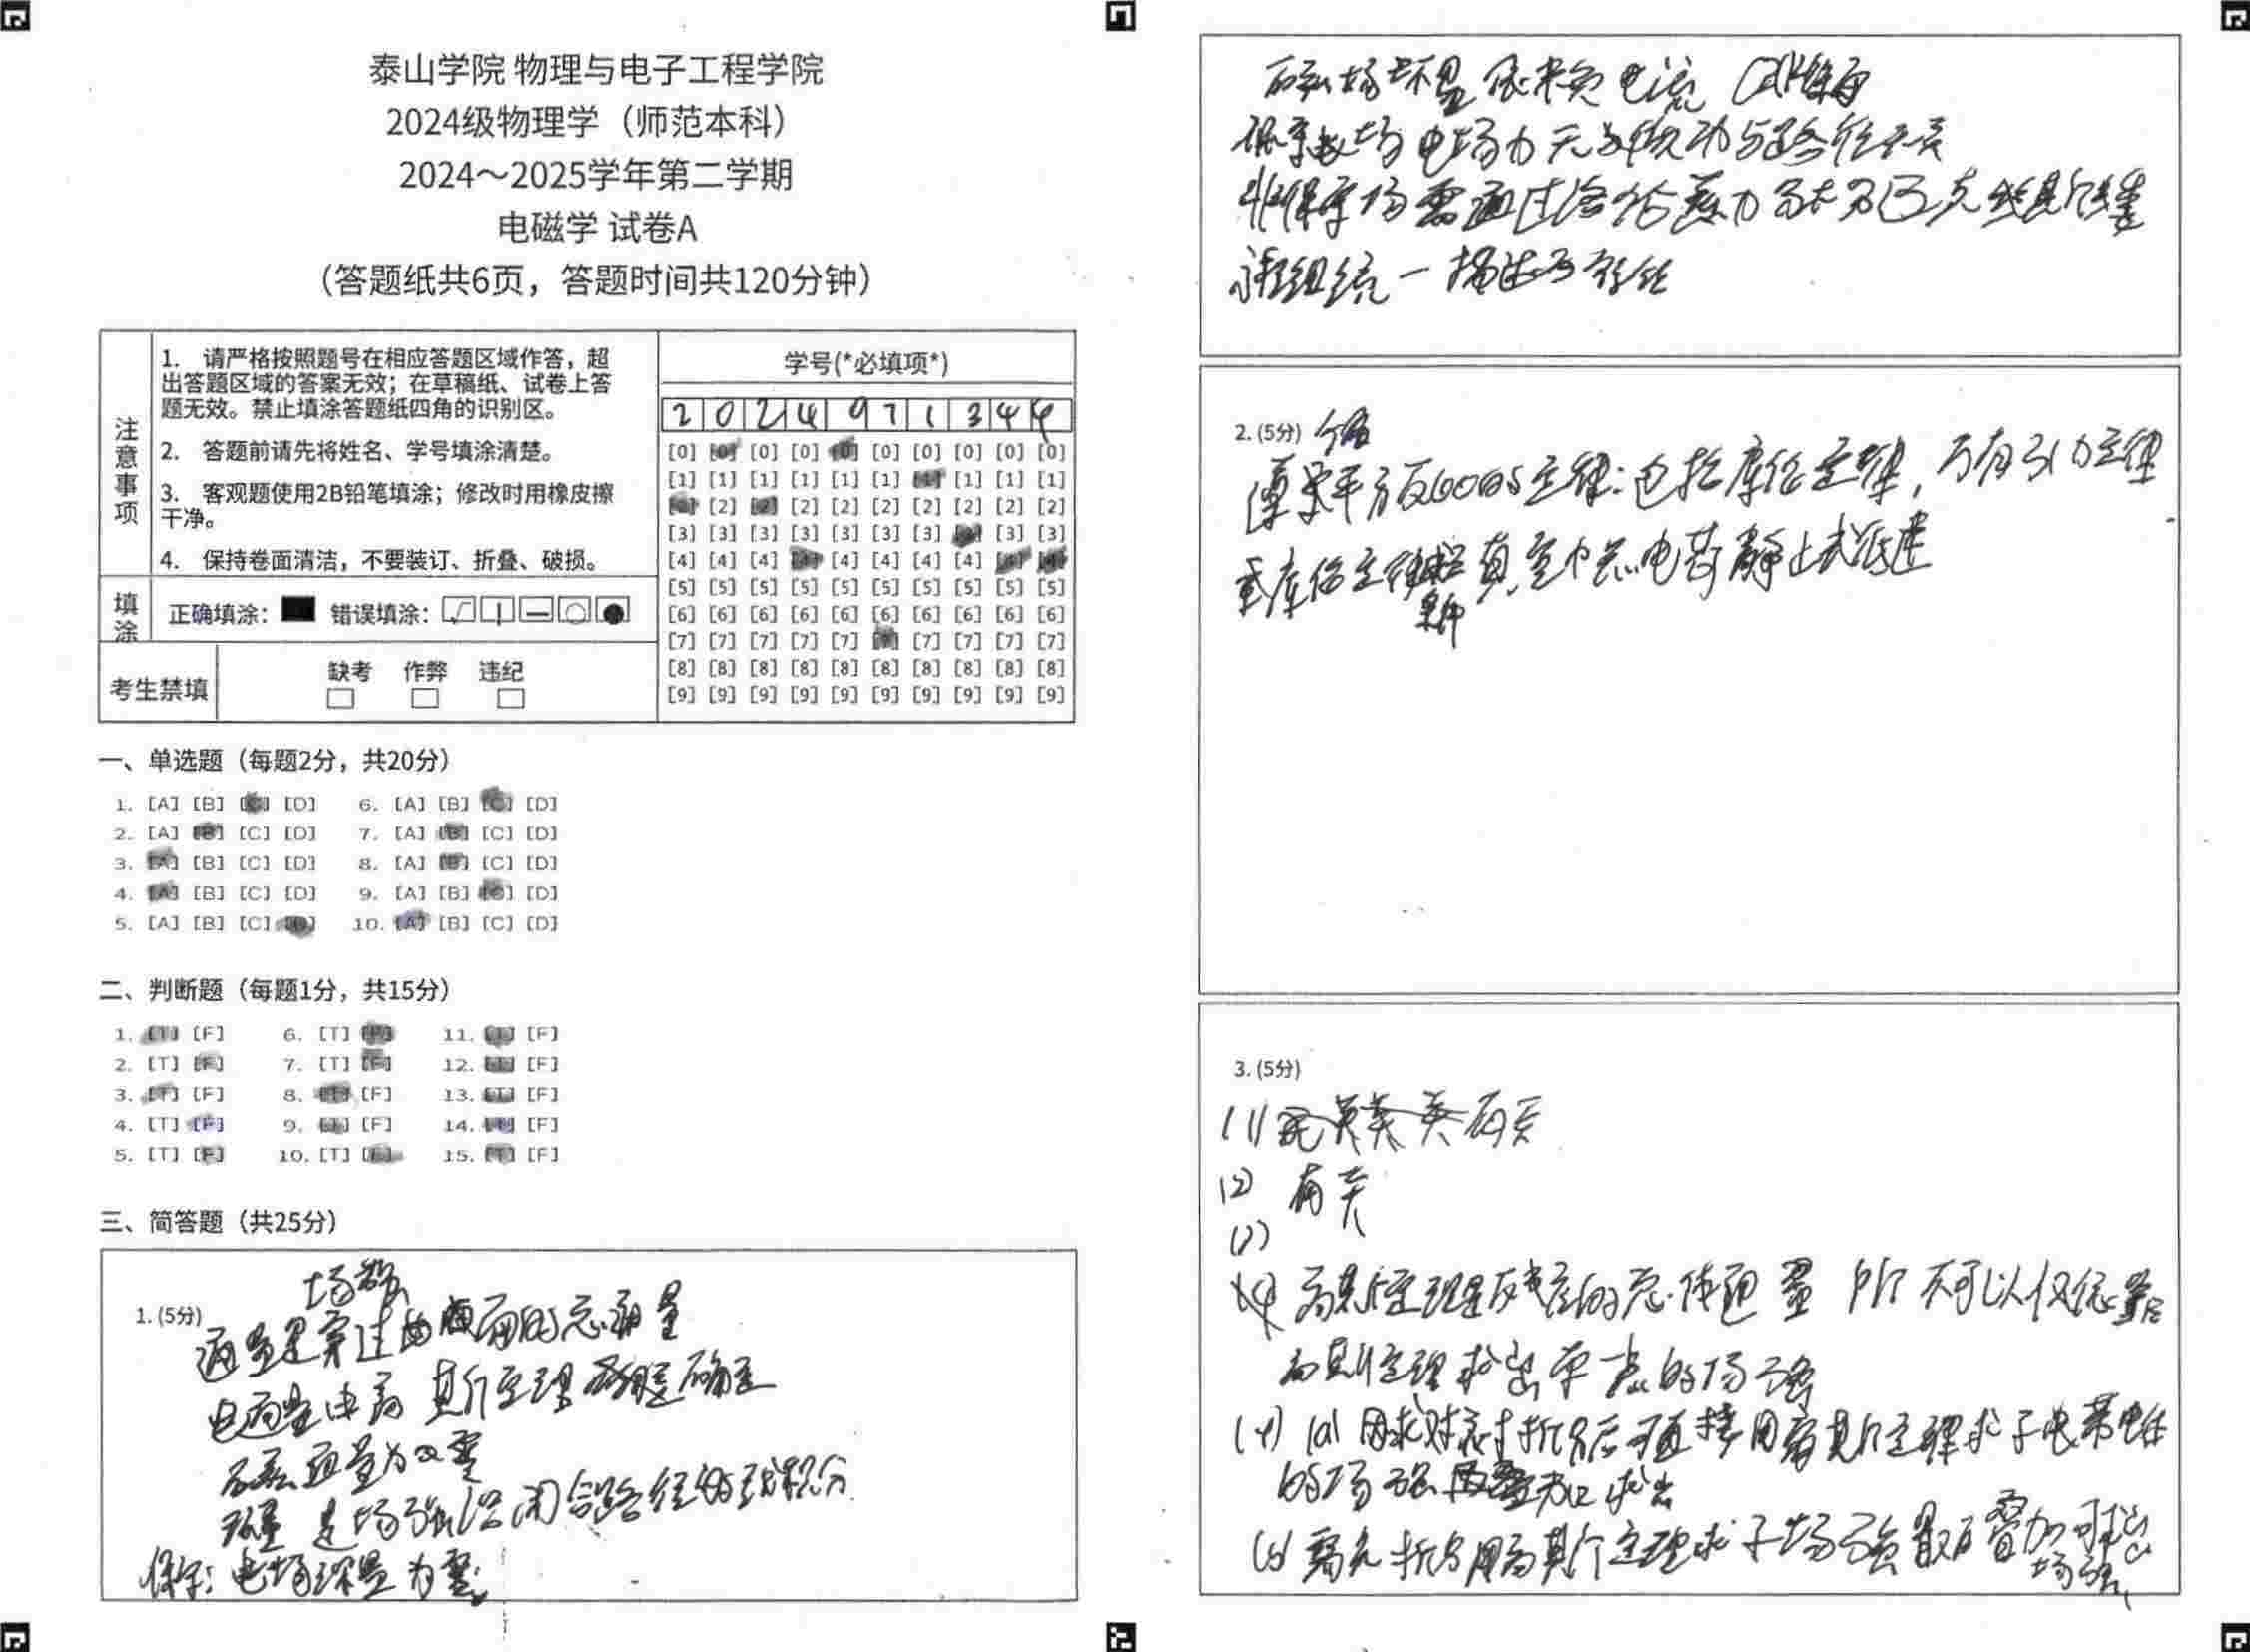 泰山学院 物理与电子工程学院
2024级物理学（师范本科）
2024～2025学年第二学期
电磁学 试卷A
（答题纸共6页，答题时间共120分钟）
注意事项
1. 请严格按照题号在相应答题区域作答，超
出答题区域的答案无效；在草稿纸、试卷上答
题无效。禁止填涂答题纸四角的识别区。
2. 答题前请先将姓名、学号填涂清楚。
3. 客观题使用2B铅笔填涂；修改时用橡皮擦
干净。
4. 保持卷面清洁，不要装订、折叠、破损。
填涂
正确填涂： 错误填涂：
考生禁填
缺考 作弊 违纪
学号(*必填项*)
2 0 2 4 0 7 1 3 4 4
[0] [0] [0] [0] [0] [0] [0] [0] [0] [0]
[1] [1] [1] [1] [1] [1] [1] [1] [1] [1]
[2] [2] [2] [2] [2] [2] [2] [2] [2] [2]
[3] [3] [3] [3] [3] [3] [3] [3] [3] [3]
[4] [4] [4] [4] [4] [4] [4] [4] [4] [4]
[5] [5] [5] [5] [5] [5] [5] [5] [5] [5]
[6] [6] [6] [6] [6] [6] [6] [6] [6] [6]
[7] [7] [7] [7] [7] [7] [7] [7] [7] [7]
[8] [8] [8] [8] [8] [8] [8] [8] [8] [8]
[9] [9] [9] [9] [9] [9] [9] [9] [9] [9]
一、单选题（每题2分，共20分）
1. [A] [B] [C] [D] 6. [A] [B] [C] [D]
2. [A] [B] [C] [D] 7. [A] [B] [C] [D]
3. [A] [B] [C] [D] 8. [A] [B] [C] [D]
4. [A] [B] [C] [D] 9. [A] [B] [C] [D]
5. [A] [B] [C] [D] 10. [A] [B] [C] [D]
二、判断题（每题1分，共15分）
1. [T] [F] 6. [T] [F] 11. [T] [F]
2. [T] [F] 7. [T] [F] 12. [T] [F]
3. [T] [F] 8. [T] [F] 13. [T] [F]
4. [T] [F] 9. [T] [F] 14. [T] [F]
5. [T] [F] 10. [T] [F] 15. [T] [F]
三、简答题（共25分）
场
1. (5分) 通量是穿过曲面的总通量
电通量由高斯定理确定
磁通量为零
环量 是场强沿闭合路径的线积分
保守：电场环量为零
磁场环量依赖电流
保守场 电场力 做功与路径无关
非保守场需通过洛伦兹力 麦克斯韦
方程组统一描述
2. (5分)
平方反比定律：包括库伦定律，万有引力定律
库伦定律 真空中点电荷静止
3. (5分)
(1) 有关
(2) 有关
(3)
高斯定理是反映的总体通量 所以不可以仅依靠
高斯定理求出单一点的场强
(4) (a) 因求对称 拆分后可直接用高斯定理求子电荷
的场强 求出
(b) 需先拆分用高斯定理求子场强最后叠加可求出
场强